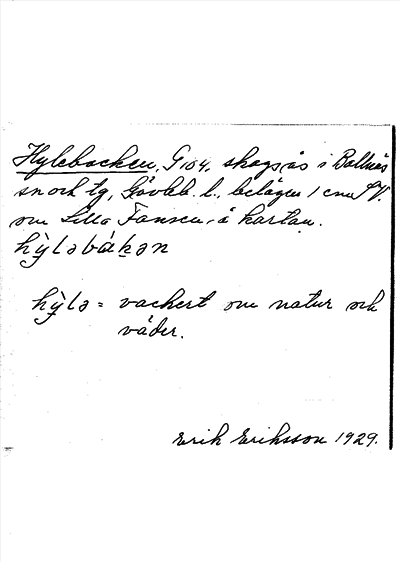 Hylebacken, G 104, skogsås i Bollnäs
sn och tg, Gävleb. l., belägen 1 cm SV.
om Lilla Fansen, å kartan.
hỳləbákən
hỳlə = vackert om natur och
väder.
Erik Eriksson 1929.